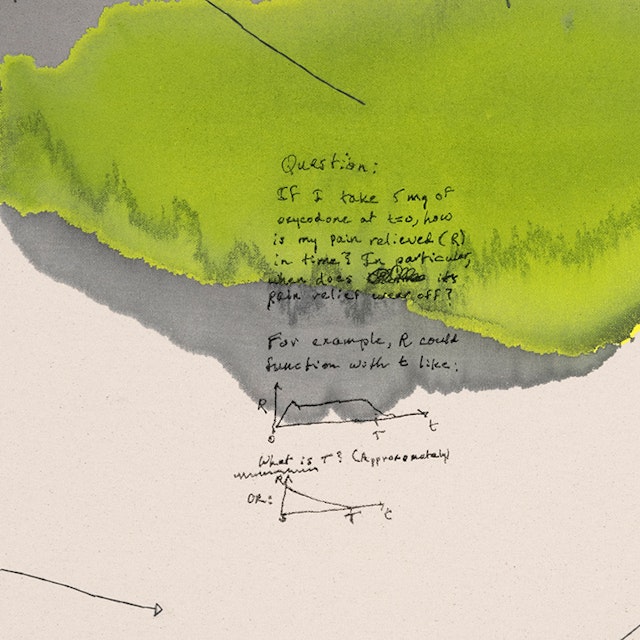 Question:
If I take 5 mg of
oxycodone at t=0, how
is my pain relieved (R)
in time? In particular,
when does its
pain relief wear off?
For example, R could
function with t like:
R
0 T t
What is T? (Approximately)
R
OR:
T t